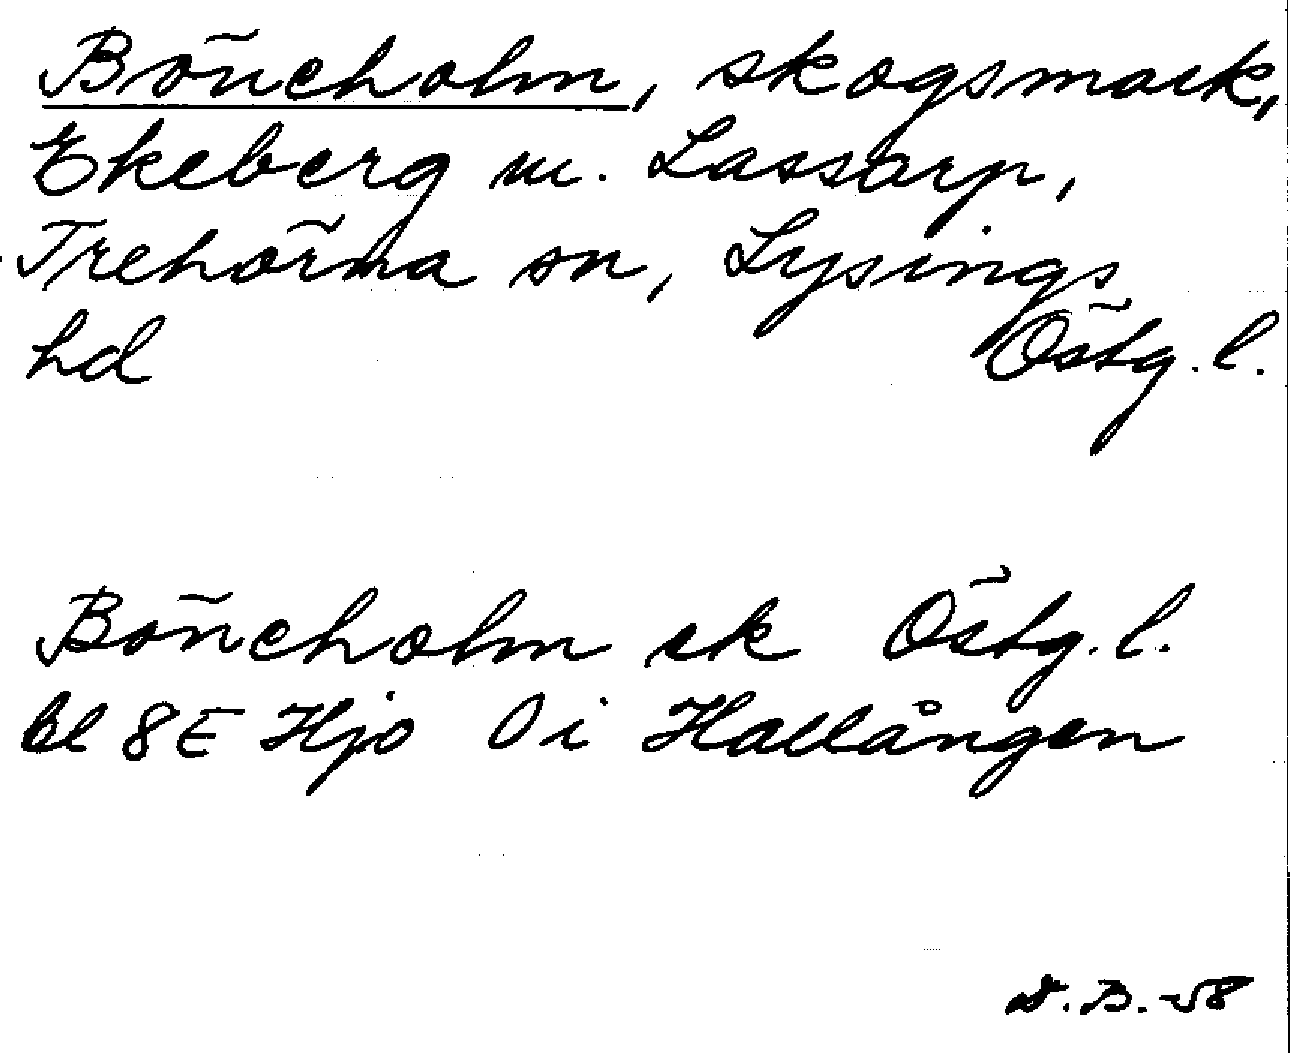 Böneholm, skogsmark,
Ekeberg m. Lassarp,
Trehörna sn, Lysings
hd Östg. l.
Böneholm sk Östg. l.
bl 8E Hjo 0i Hallången
B. -58